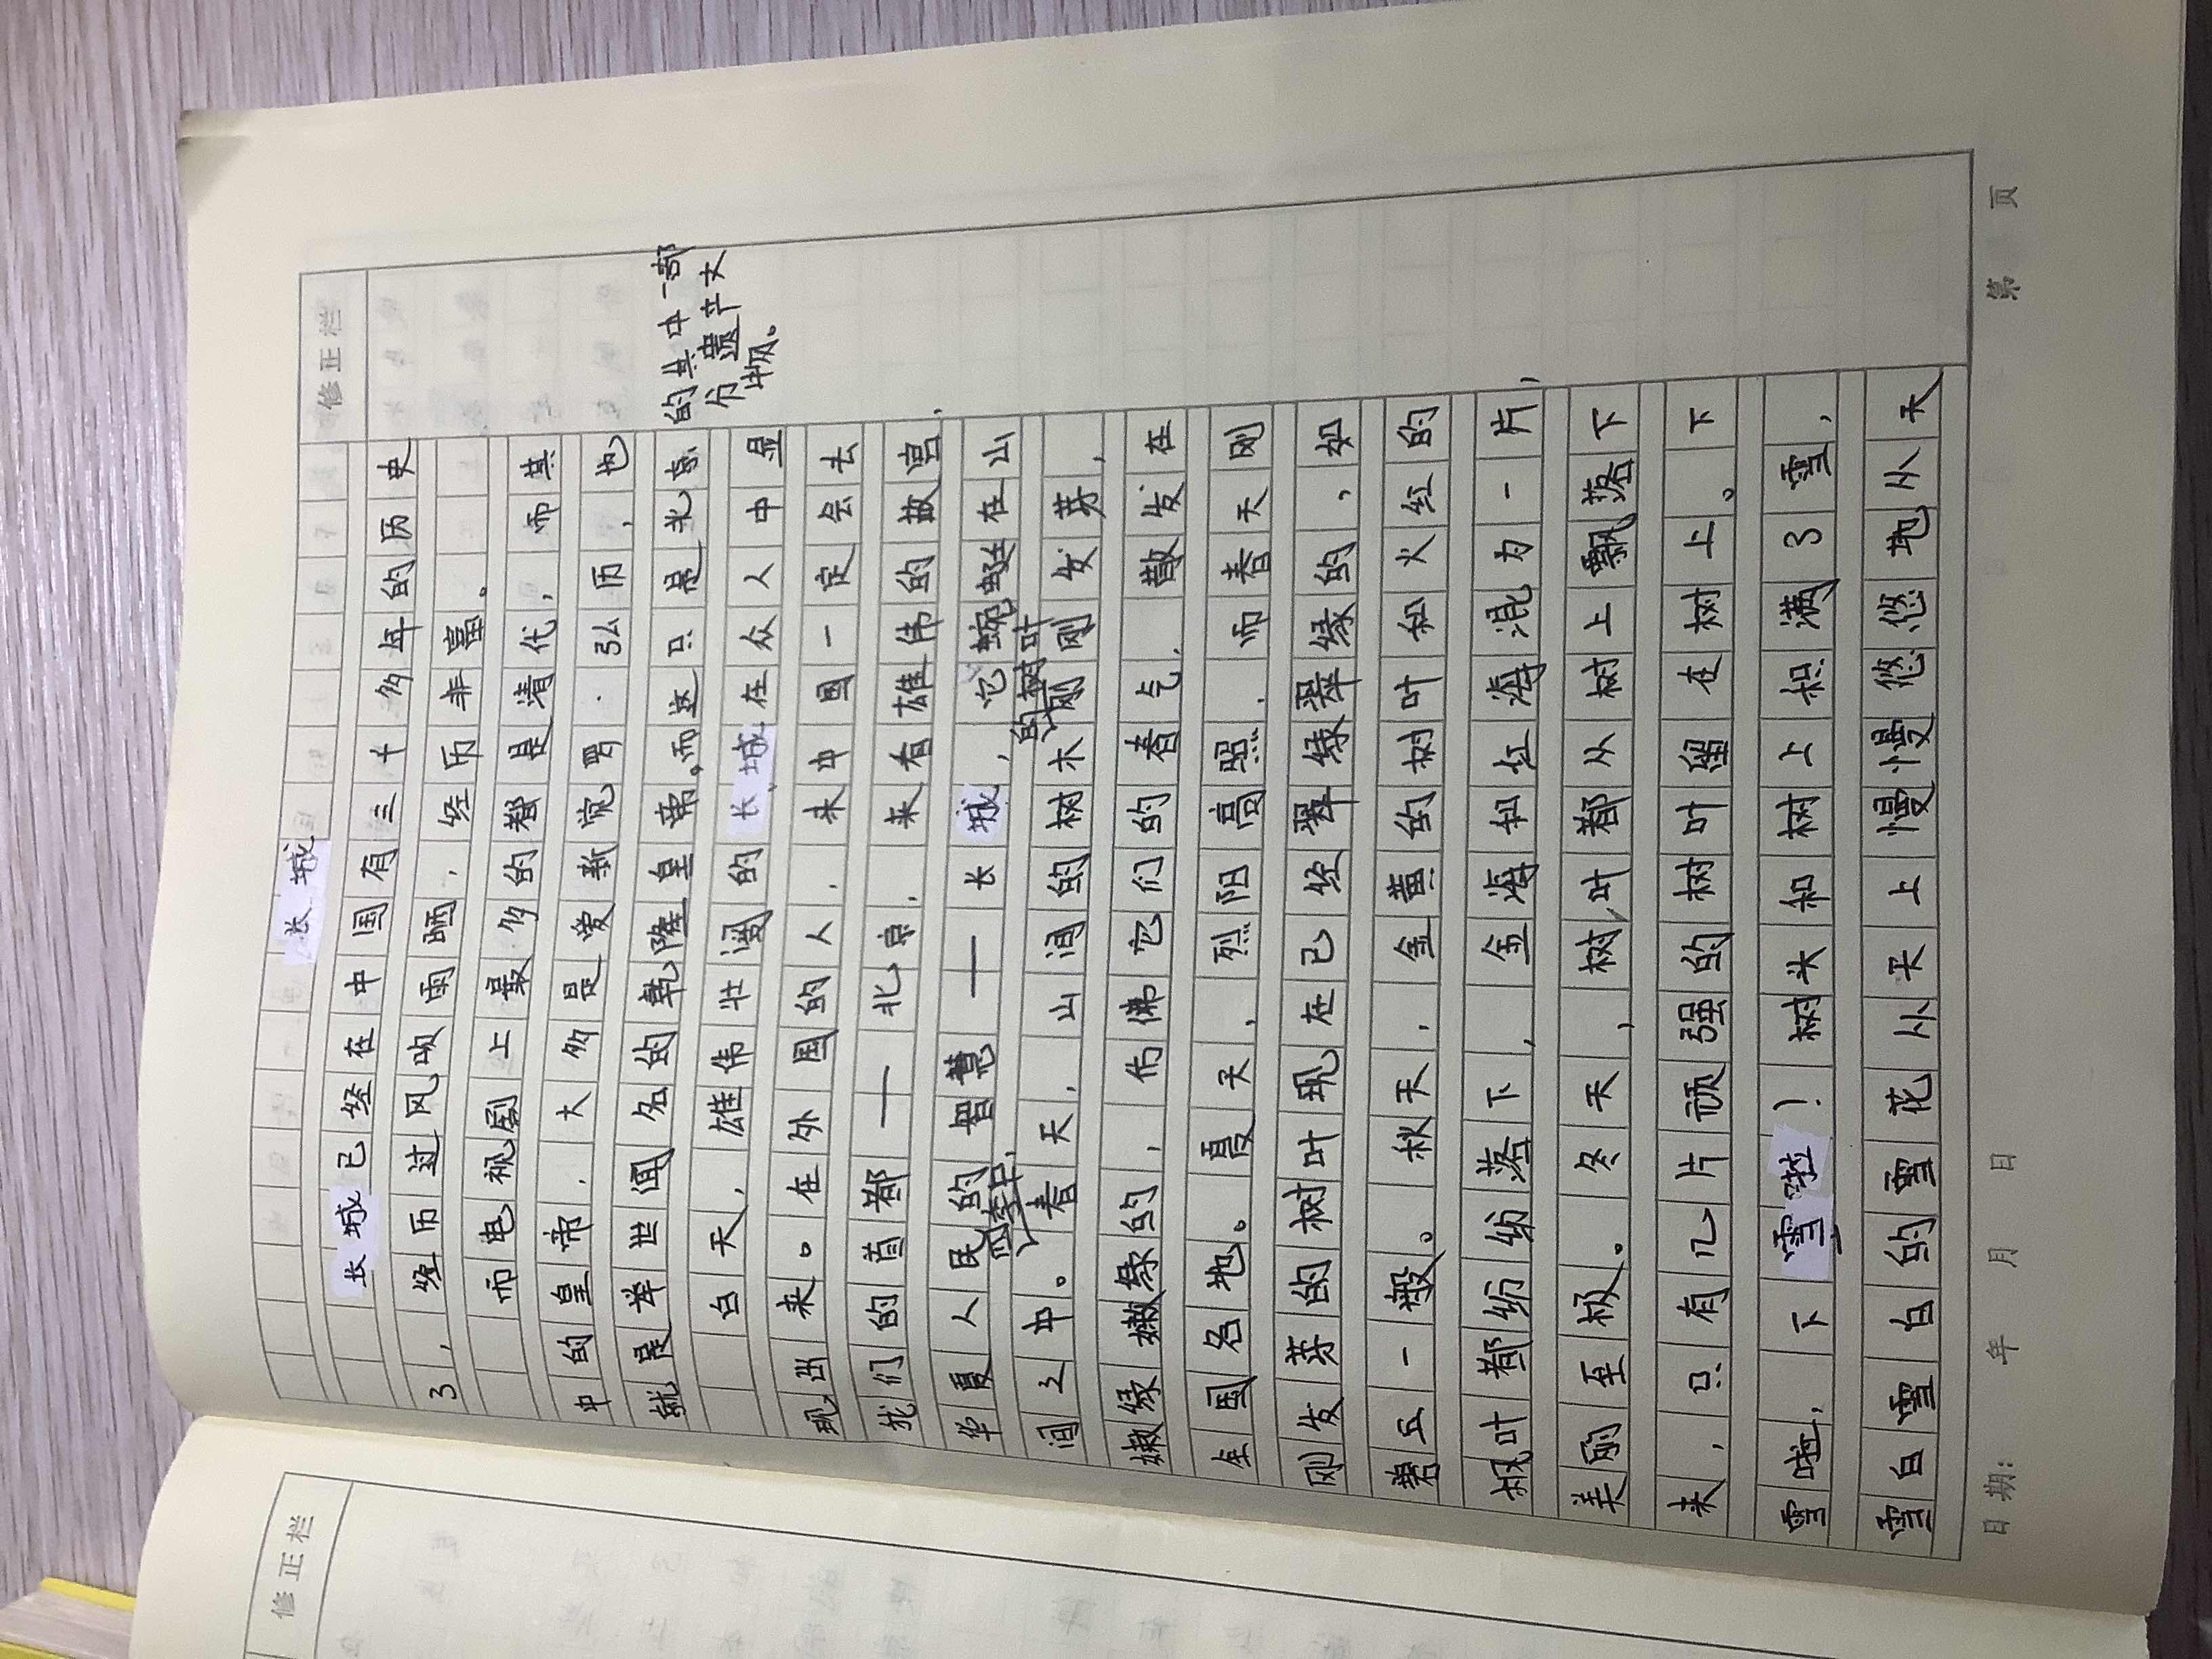 修正栏
长城
长城已经在中国有三千多年的历史
了，经历过风吹雨晒，经历非富。
而电视剧上最多的都是清代，而其
中的皇帝，大多是爱新觉罗·弘历，也
就是举世闻名的乾隆皇帝。而这只是北京
的其中一部
分遗产文
物。
白天，雄伟壮阔的长城在众人中显
现出来。在外国的人，来中国一定会去
我们的首都——北京，来看雄伟的故宫，
华夏人民的智慧——长城，它蜿蜒在山
四季中，
的树叶
间之中。春天，山涧的树木刚刚发芽，
嫩绿嫩绿的，仿佛它们的春气，散发在
全国各地。夏天，烈阳高照，而春天刚
刚发芽的树叶现在已经翠绿翠绿的，如
碧丘一般。秋天，金黄的树叶和火红的
枫叶都纷纷落下，金海和红海混为一片，
美丽至极。冬天，树叶都从树上飘落下
来，只有几片顽强的树叶留在树上。下
雪啦，下雪啦！树头和树上积满了雪，
雪白雪白的雪花从天上慢慢悠悠地从天
日期： 年 月 日 第 页
修正栏